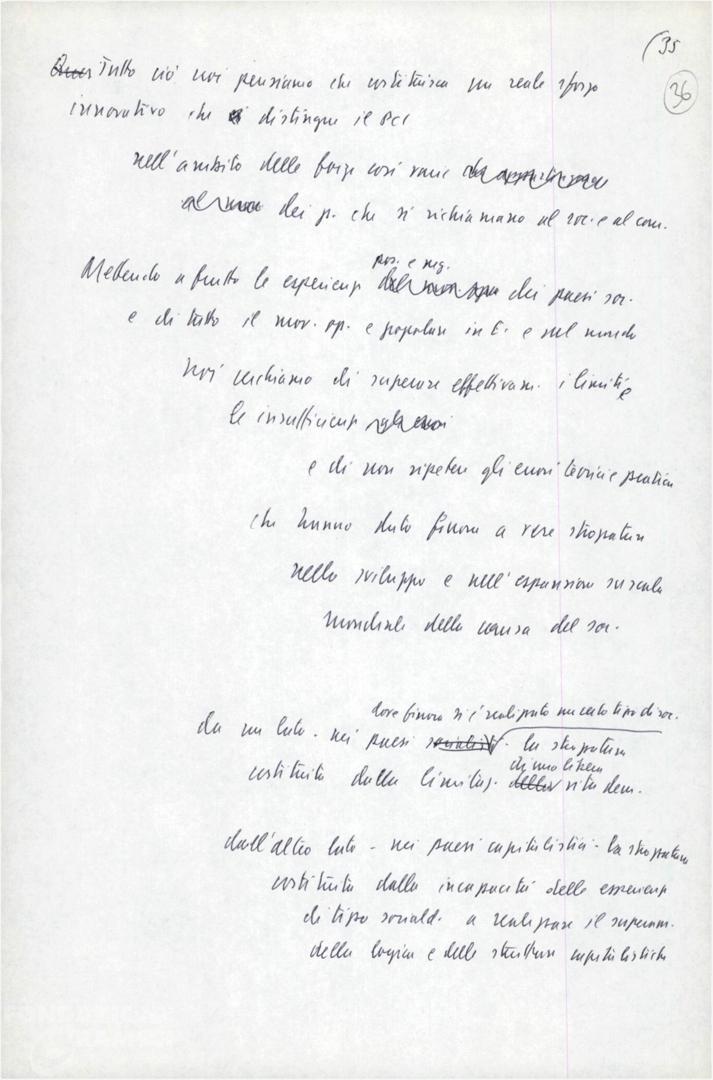 (35
36
Tutto ciò noi pensiamo che costituisca un reale sforzo
innovativo che distingue il PCI
nell'ambito delle forze così varie
dei p. che si richiamano al soc. e al com.
pos. e neg.
Mettendo a frutto le esperienze dei paesi soc.
e di tutto il mov. op. e popolare in E. e nel mondo
noi cerchiamo di superare effettivam. i limiti e
le insufficienze
e di non ripetere gli errori teorici e pratici
che hanno dato finora a vere strozzature
nello sviluppo e nell'espansione su scala
mondiale della causa del soc.
dove finora si è realizzato un certo tipo di soc.
da un lato - nei paesi - la strozzatura
di una libera
costituita dalla limitaz. vita dem.
dall'altro lato - nei paesi capitalistici - la strozzatura
costituita dalla incapacità delle esperienze
di tipo sociald. a realizzare il superam.
della logica e delle strutture capitalistiche